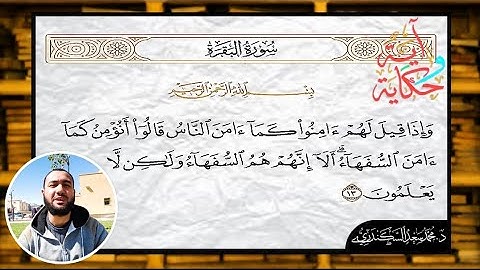 سُورَةُ البَقَرَةِ
آية
و
حكاية
بِسْمِ اللَّهِ الرَّحْمَٰنِ الرَّحِيمِ
وَإِذَا قِيلَ لَهُمْ ءَامِنُوا۟ كَمَآ ءَامَنَ ٱلنَّاسُ قَالُوٓا۟ أَنُؤْمِنُ كَمَآ
ءَامَنَ ٱلسُّفَهَآءُ ۗ أَلَآ إِنَّهُمْ هُمُ ٱلسُّفَهَآءُ وَلَٰكِن لَّا
يَعْلَمُونَ ١٣
د. محمد سعد السكندري